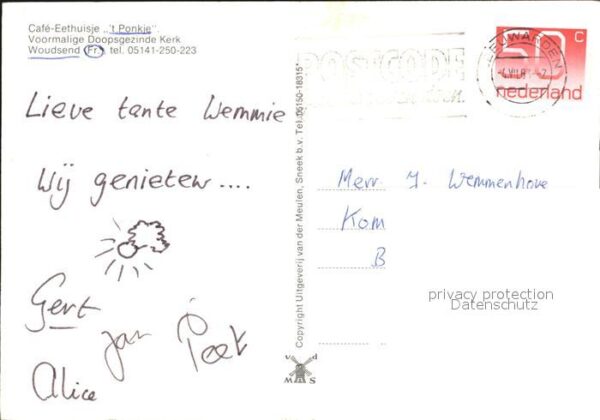 Café-Eethuisje „'t Ponkje"
Voormalige Doopsgezinde Kerk
Woudsend (Fr.) tel. 05141-250-223
Lieve tante Wemmie
Wij genieten....
Gert
Jan Peet
Alice
Copyright Uitgeverij van der Meulen, Sneek b.v. Tel. 05150-18315*
v d
M S
POSTCODE
LEEUWARDEN
50 c
nederland
Mevr. J. Wemmenhove
Kom
B
privacy protection
Datenschutz